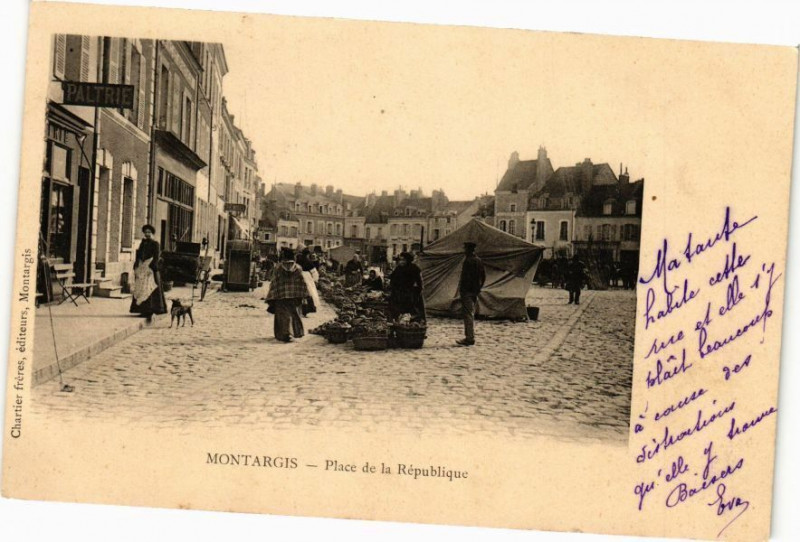 PALTRIE
Chartier frères, éditeurs, Montargis
MONTARGIS — Place de la République
Ma tante
habite cette
rue et elle s'y
plaît beaucoup
à cause des
distractions
qu'elle y trouve
Baisers
Eva